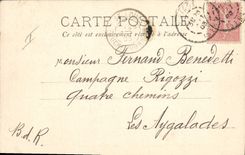 CARTE POSTALE
Ce côté est exclusivement réservé à l'adresse
F
Monsieur Fernand Benedetti
Campagne Rigozzi
Quatre Chemins
Les Aygalades
B.d.R.